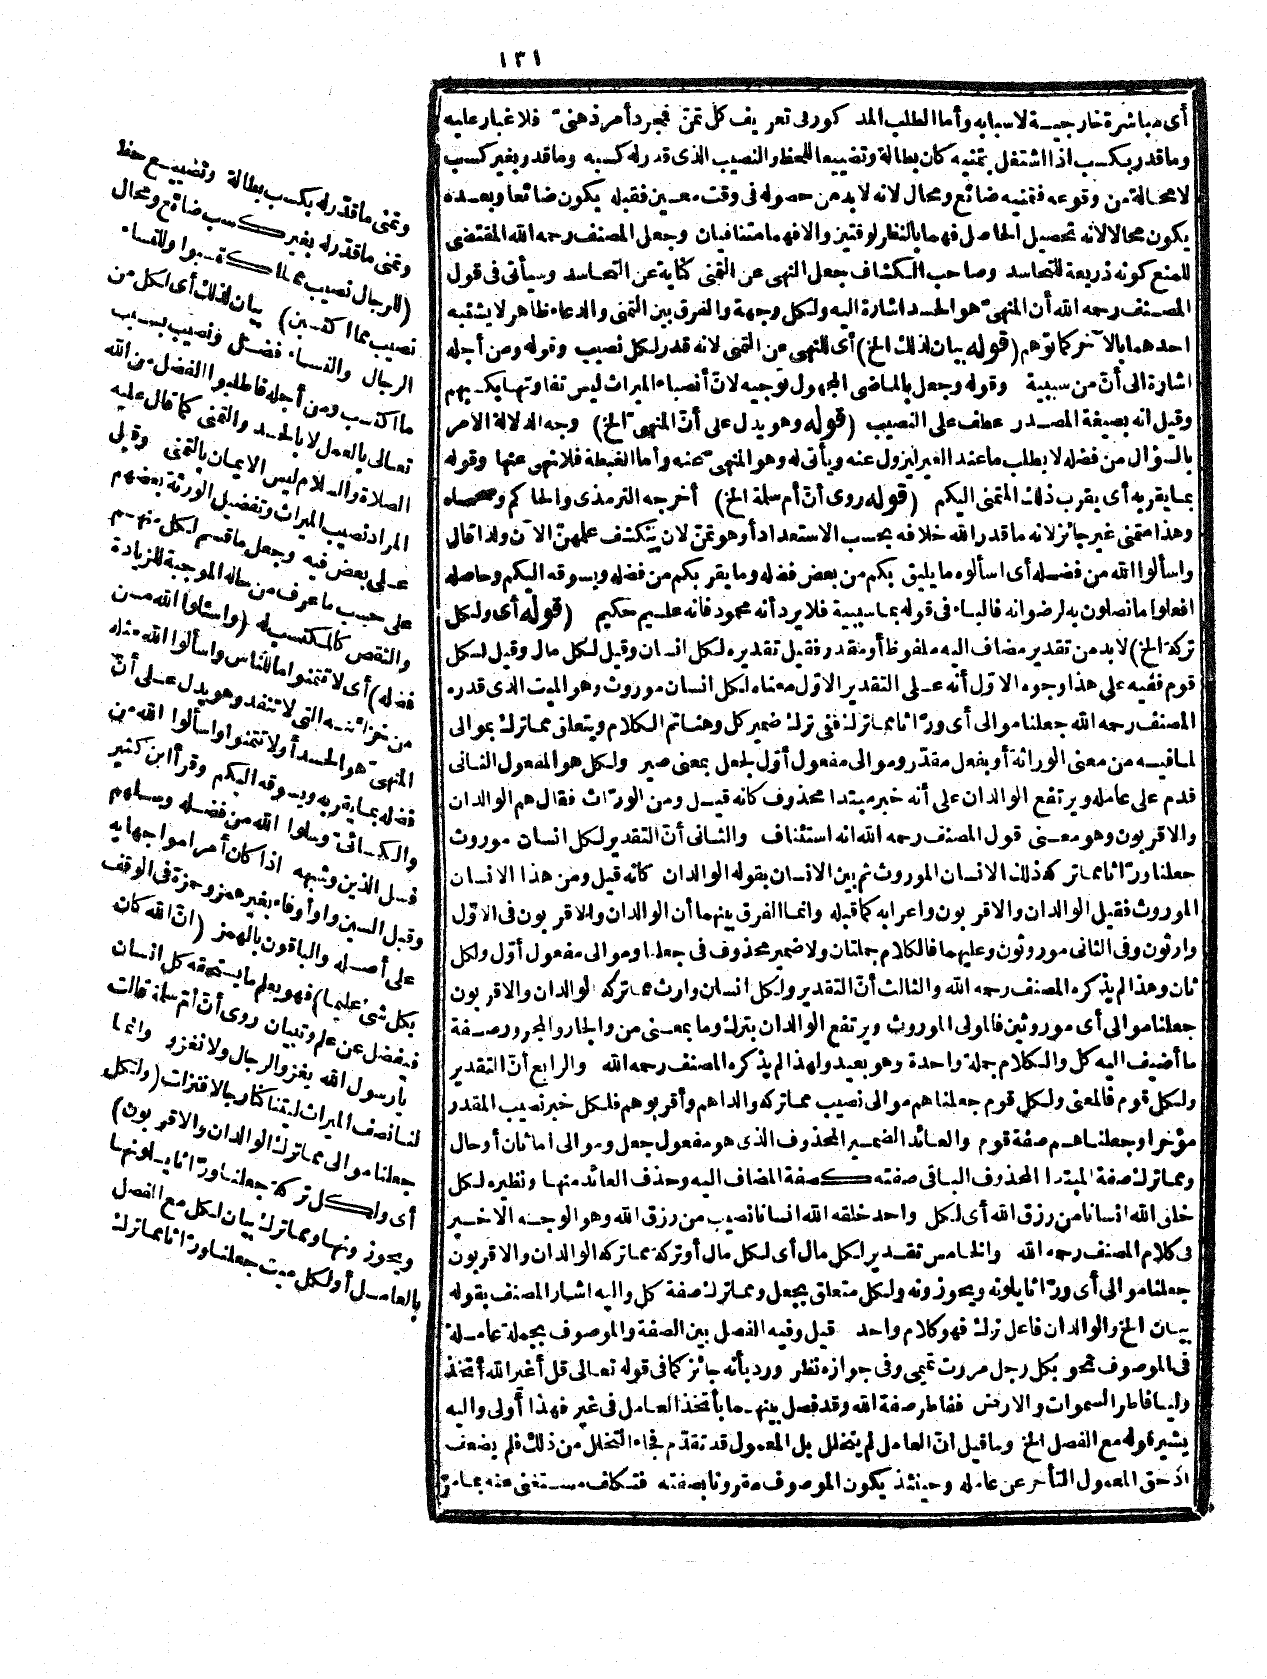 ١٣١
أى مباشرة خارجية لاسبابه وأما الطلب المذكور فى تعريف كل تمن فمجرد أمر ذهنىّ فلا غبار عليه
وما قدر بكسب اذا اشتغل بتمنيه كان بطالة وتضييعا للحظ والنصيب الذى قدر له كسبه وما قدر بغير كسب
لا محالة من وقوعه فتمنيه ضائع ومحال لانه لابد من حصوله فى وقت معين فقبله يكون ضائعا وبعده
يكون محالا لانه تحصيل الحاصل فهما بالنظر لوقتين والا فهما متنافيان وجعل المصنف رحمه الله المقتضى
للمنع كونه ذريعة للتحاسد وصاحب الكشاف جعل النهى عن التمنى كناية عن التحاسد وسيأتى فى قول
المصنف رحمه الله أن المنهىّ هو الحسد اشارة اليه ولكل وجهة والفرق بين التمنى والدعاء ظاهر لا يشتبه
احدهما بالآخر كما توهم (قوله بيان لذلك الخ) أى للنهى عن التمنى لانه قدر لكل نصيب وقوله ومن أجله
اشارة الى أنّ من سببية وقوله وجعل بالماضى المجهول توجيه لانّ أنصباء الميراث ليس تفاوتها بكسبهم
وقيل انه بصيغة المصدر عطف على النصيب (قوله وهو يدل على أنّ المنهىّ الخ) وجه الدلالة الامر
بالسؤال من فضله لا بطلب ما عند الغير ليزول عنه ويأتى له وهو المنهىّ عنه وأما الغبطة فلا نهى عنها وقوله
بما يقربه أى يقرب ذلك المتمنى اليكم (قوله روى أنّ أم سلمة الخ) أخرجه الترمذى والحاكم وصححاه
وهذا متمنى غير جائز لانه ما قدر الله خلافه بحسب الاستعداد أو هو تمنّ لان ينكشف علمهنّ الآن ولذا قال
واسألوا الله من فضله أى اسألوه ما يليق بكم من بعض فضله وما يقربكم من فضله ويسوقه اليكم وحاصله
افعلوا ما تصلون به لرضوانه فالباء فى قوله بما سببية فلا يرد أنه محمود فانه عليم حكيم (قوله أى ولكل
تركة الخ) لا بد من تقدير مضاف اليه ملفوظ أو مقدر فقيل تقديره لكل انسان وقيل لكل مال وقيل لكل
قوم ففيه على هذا وجوه الاوّل أنه على التقدير الاوّل معناه لكل انسان موروث وهو الميت الذى قدره
المصنف رحمه الله جعلنا موالى أى ورّاثا مما ترك ففى ترك ضمير كل وهنا تم الكلام ويتعلق مما ترك بموالى
لما فيه من معنى الوراثة أو بفعل مقدر وموالى مفعول أوّل لجعل بمعنى صير ولكل هو المفعول الثانى
قدم على عامله ويرتفع الوالدان على أنه خبر مبتدا محذوف كانه قيل ومن الورّاث فقال هم الوالدان
والاقربون وهو معنى قول المصنف رحمه الله انه استئناف والثانى أنّ التقدير لكل انسان موروث
جعلنا ورّاثا مما تركه ذلك الانسان الموروث ثم بين الانسان بقوله الوالدان كانه قيل ومن هذا الانسان
الموروث فقيل الوالدان والاقربون واعرابه كما قبله وانما الفرق بينهما أن الوالدان والاقربون فى الاوّل
وارثون وفى الثانى موروثون وعليهما فالكلام جملتان ولا ضمير محذوف فى جعلنا وموالى مفعول أوّل ولكل
ثان وهذا لم يذكره المصنف رحمه الله والثالث أنّ التقدير ولكل انسان وارث مما تركه الوالدان والاقربون
جعلنا موالى أى موروثين فالمولى الموروث ويرتفع الوالدان بترك وما بمعنى من والجار والمجرور صفة
ما أضيف اليه كل والكلام جملة واحدة وهو بعيد ولهذا لم يذكره المصنف رحمه الله والرابع أنّ التقدير
ولكل قوم فالمعنى ولكل قوم جعلناهم موالى نصيب مما تركه والداهم وأقربوهم فلكل خبر نصيب المقدر
مؤخرا وجعلناهم صفة قوم والعائد الضمير المحذوف الذى هو مفعول جعل وموالى اما ثان أو حال
ومما ترك صفة المبتدا المحذوف الباقى صفته كصفة المضاف اليه وحذف العائد منها ونظيره لكل
خلق الله انسانا من رزق الله أى لكل واحد خلقه الله انسانا نصيب من رزق الله وهو الوجه الاخير
فى كلام المصنف رحمه الله والخامس تقدير لكل مال أى لكل مال أو تركة مما تركه الوالدان والاقربون
جعلنا موالى أى ورّاثا يلونه ويحوزونه ولكل متعلق بجعل ومما ترك صفة كل واليه اشار المصنف بقوله
بيان الخ والوالدان فاعل ترك فهو كلام واحد قيل وفيه الفصل بين الصفة والموصوف بجملة عاملة
فى الموصوف نحو بكل رجل مررت تميمى وفى جوازه نظر وردّ بأنه جائز كما فى قوله تعالى قل أغير الله أتخذ
وليا فاطر السموات والارض ففاطر صفة الله وقد فصل بينهما بأتخذ العامل فى غير فهذا أولى واليه
يشير قوله مع الفصل الخ وما قيل انّ العامل لم يتخلل بل المعمول قد تقدّم فجاء التخلل من ذلك فلم يضعف
اذ حق المعمول التأخر عن عامله وحينئذ يكون الموصوف مقرونا بصفته فتكلف مستغنى عنه بما مرّ
وتمنى ما قدّر له بكسب بطالة وتضييع حظ
وتمنى ما قدّر له بغير كسب ضائع ومحال
(للرجال نصيب مما اكتسبوا وللنساء
نصيب مما اكتسبن) بيان لذلك أى لكل من
الرجال والنساء فضل ونصيب بسبب
ما اكتسب ومن أجله فاطلبوا الفضل من الله
تعالى بالعمل لا بالحسد والتمنى كما قال عليه
الصلاة والسلام ليس الايمان بالتمنى وقيل
المراد نصيب الميراث وتفضيل الورثة بعضهم
على بعض فيه وجعل ما قسم لكل منهم
على حسب ما عرف من حاله الموجبة للزيادة
والنقص كالمكتسب له (واسئلوا الله من
فضله) أى لا تتمنوا ما للناس واسألوا الله مثله
من خزائنه التى لا تنفد وهو يدل على أنّ
المنهىّ هو الحسد أو لا تتمنوا واسألوا الله من
فضله بما يقربه ويسوقه اليكم وقرأ ابن كثير
والكسائىّ وسلوا الله من فضله وسلهم
فسل الذين وشبهه اذا كان أمرا مواجها به
وقبل السين واو أو فاء بغير همز وحمزة فى الوقف
على أصله والباقون بالهمز (انّ الله كان
بكل شئ عليما) فهو يعلم ما يستحقه كل انسان
فيفضل عن علم وتبيان روى أنّ أمّ سلمة قالت
يا رسول الله يغزو الرجال ولا نغزو وانما
لنا نصف الميراث ليتنا كنا رجالا فنزلت (ولكل
جعلنا موالى مما ترك الوالدان والاقربون)
أى ولكل تركة جعلنا ورّاثا يلونها
ويحوزونها ومما ترك بيان لكل مع الفصل
بالعامل أو لكل ميت جعلنا ورّاثا مما ترك